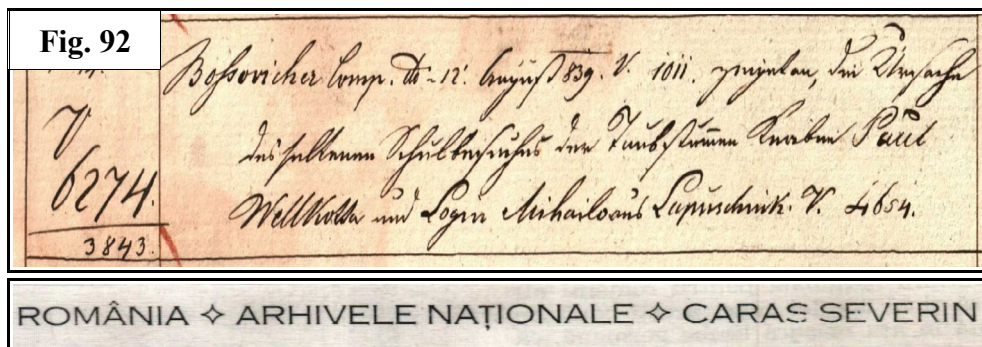 Fig. 92
Bosovicher Comp. dto 12. August 839 V. 1011. zeiget an, die Ursache
V
des seltenen Schulbesuches der Taubstummen Knaben Paul
6274.
Wellkotta und Login Mihailo aus Lapuschnik. V. 4654.
3843.
ROMÂNIA ✧ ARHIVELE NAȚIONALE ✧ CARAS SEVERIN